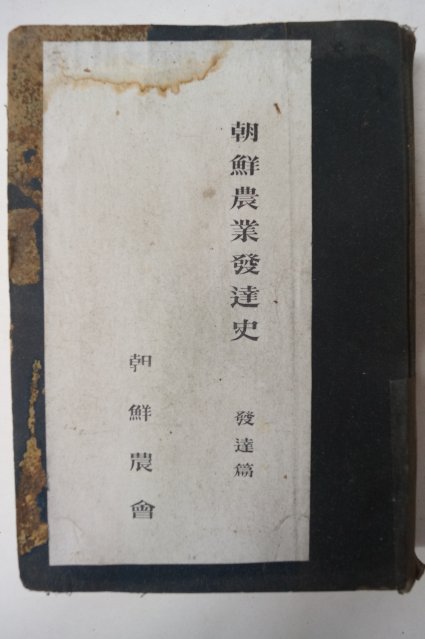 朝鮮農業發達史 發達篇
朝鮮農會